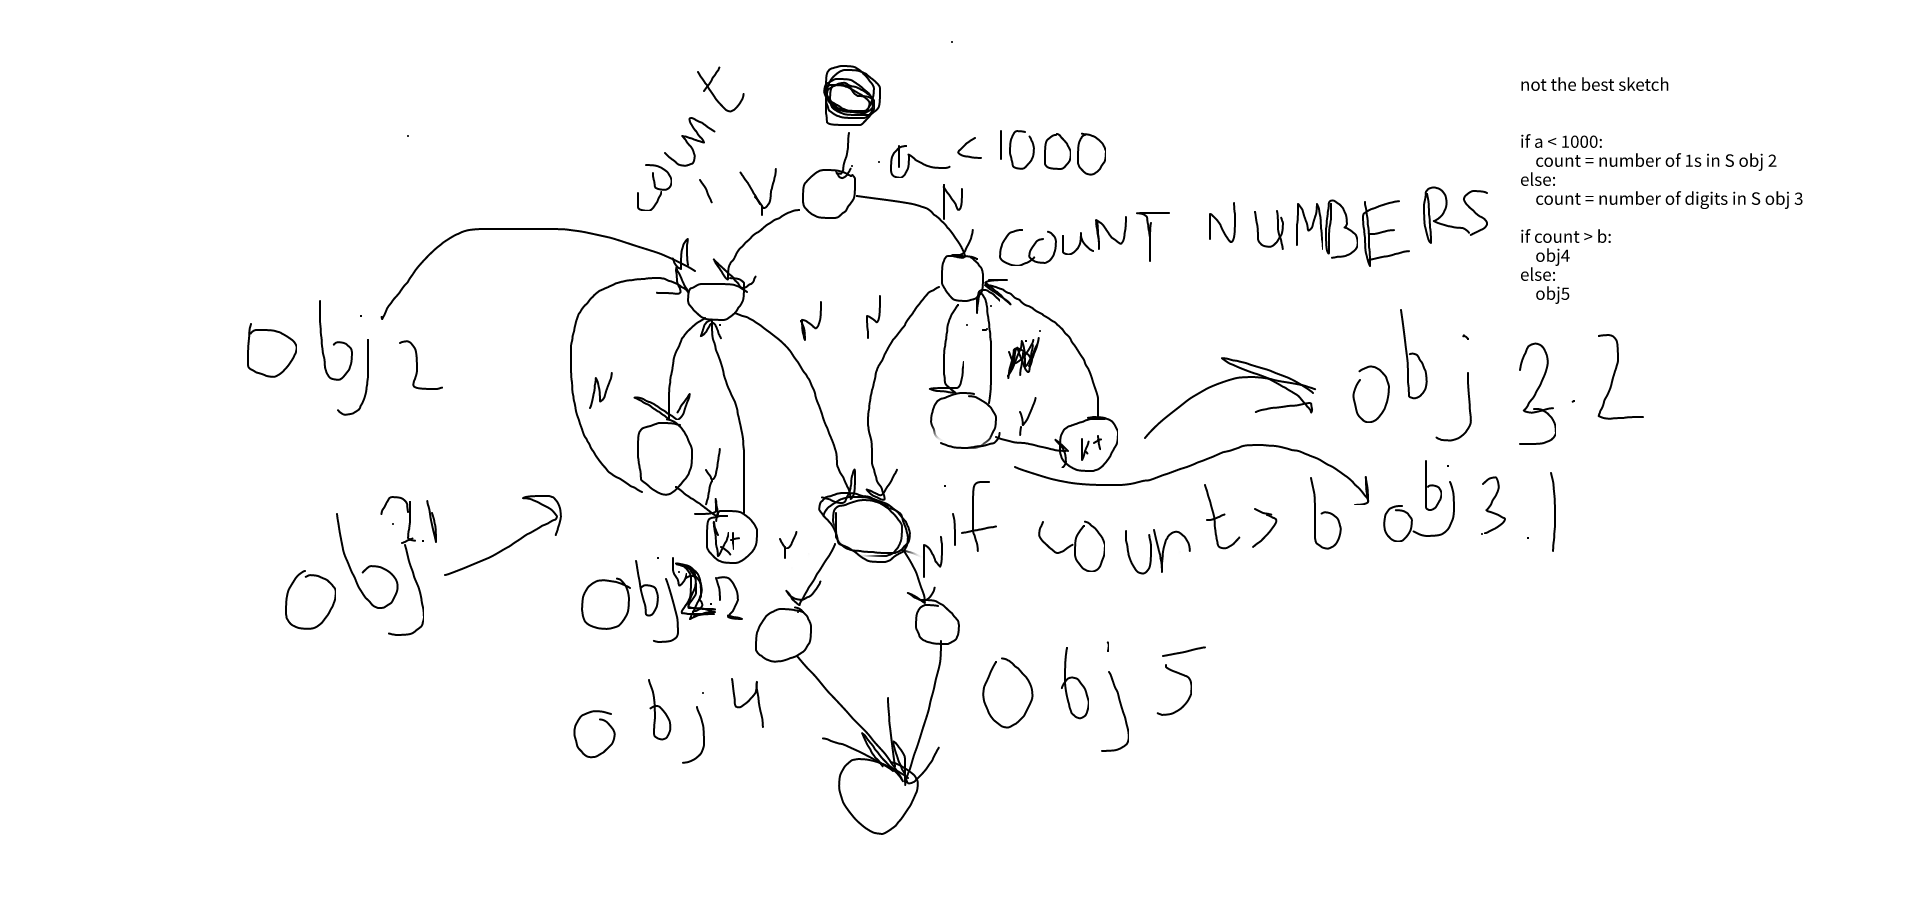 count
a < 1000
1 Y
N
COUNT NUMBERS
obj 2
N
N
N
Y
Y
K+
K+
obj 3.2
obj 2.1
obj 2.2
Y
N
if count > b
obj 3.1
obj 4
obj 5
not the best sketch
if a < 1000:
count = number of 1s in S obj 2
else:
count = number of digits in S obj 3
if count > b:
obj4
else:
obj5